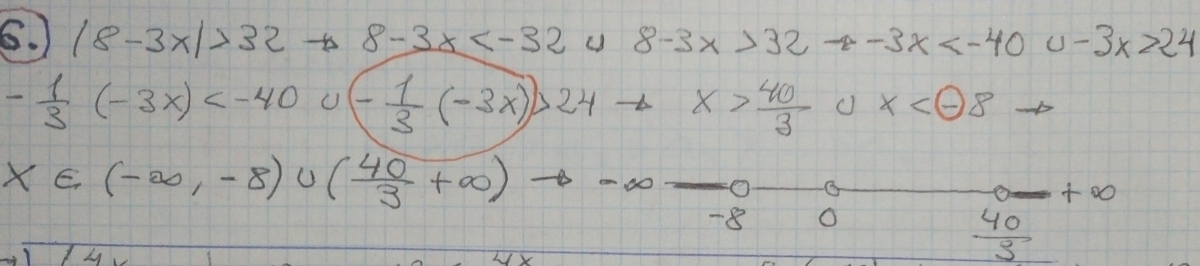 6.) |8-3x|>32 → 8-3x<-32 ∪ 8-3x>32 → -3x<-40 ∪ -3x>24
-1/3 (-3x)<-40 ∪ -1/3 (-3x)>24 → x>40/3 ∪ x<-8 →
x ∈ (-∞, -8) ∪ (40/3 +∞) → -∞ +∞
-8 0 40/3